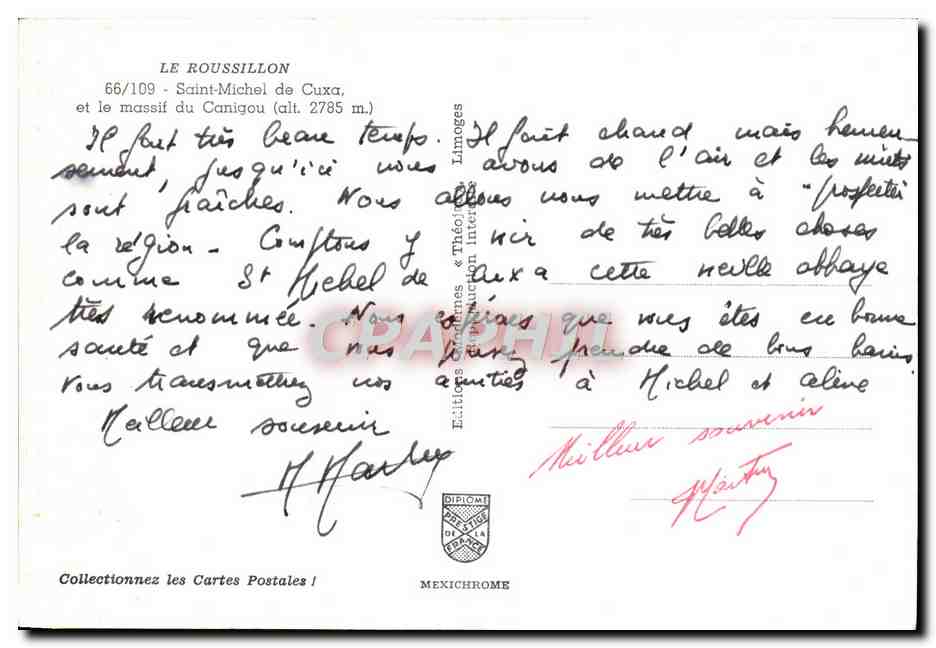 LE ROUSSILLON
66/109 - Saint-Michel de Cuxa,
et le massif du Canigou (alt. 2785 m.)
Il fait très beau temps. Il fait chaud mais heureu-
sement, jusqu'ici nous avons de l'air et les nuits
sont fraîches. Nous allons nous mettre à "prospecter
la région - Comptons y voir de très belles choses
comme St Michel de Cuxa cette vieille abbaye
très renommée. Nous espérons que vous êtes en bonne
santé et que vous pouvez prendre de bons bains.
Vous transmettrez nos amitiés à Michel et
Meilleur souvenir
Meilleur souvenir
Editions Modernes « Théojac » Limoges
Reproduction Interdite
CPAPHIL
DIPLOME
PRESTIGE
DE LA
FRANCE
Collectionnez les Cartes Postales !
MEXICHROME